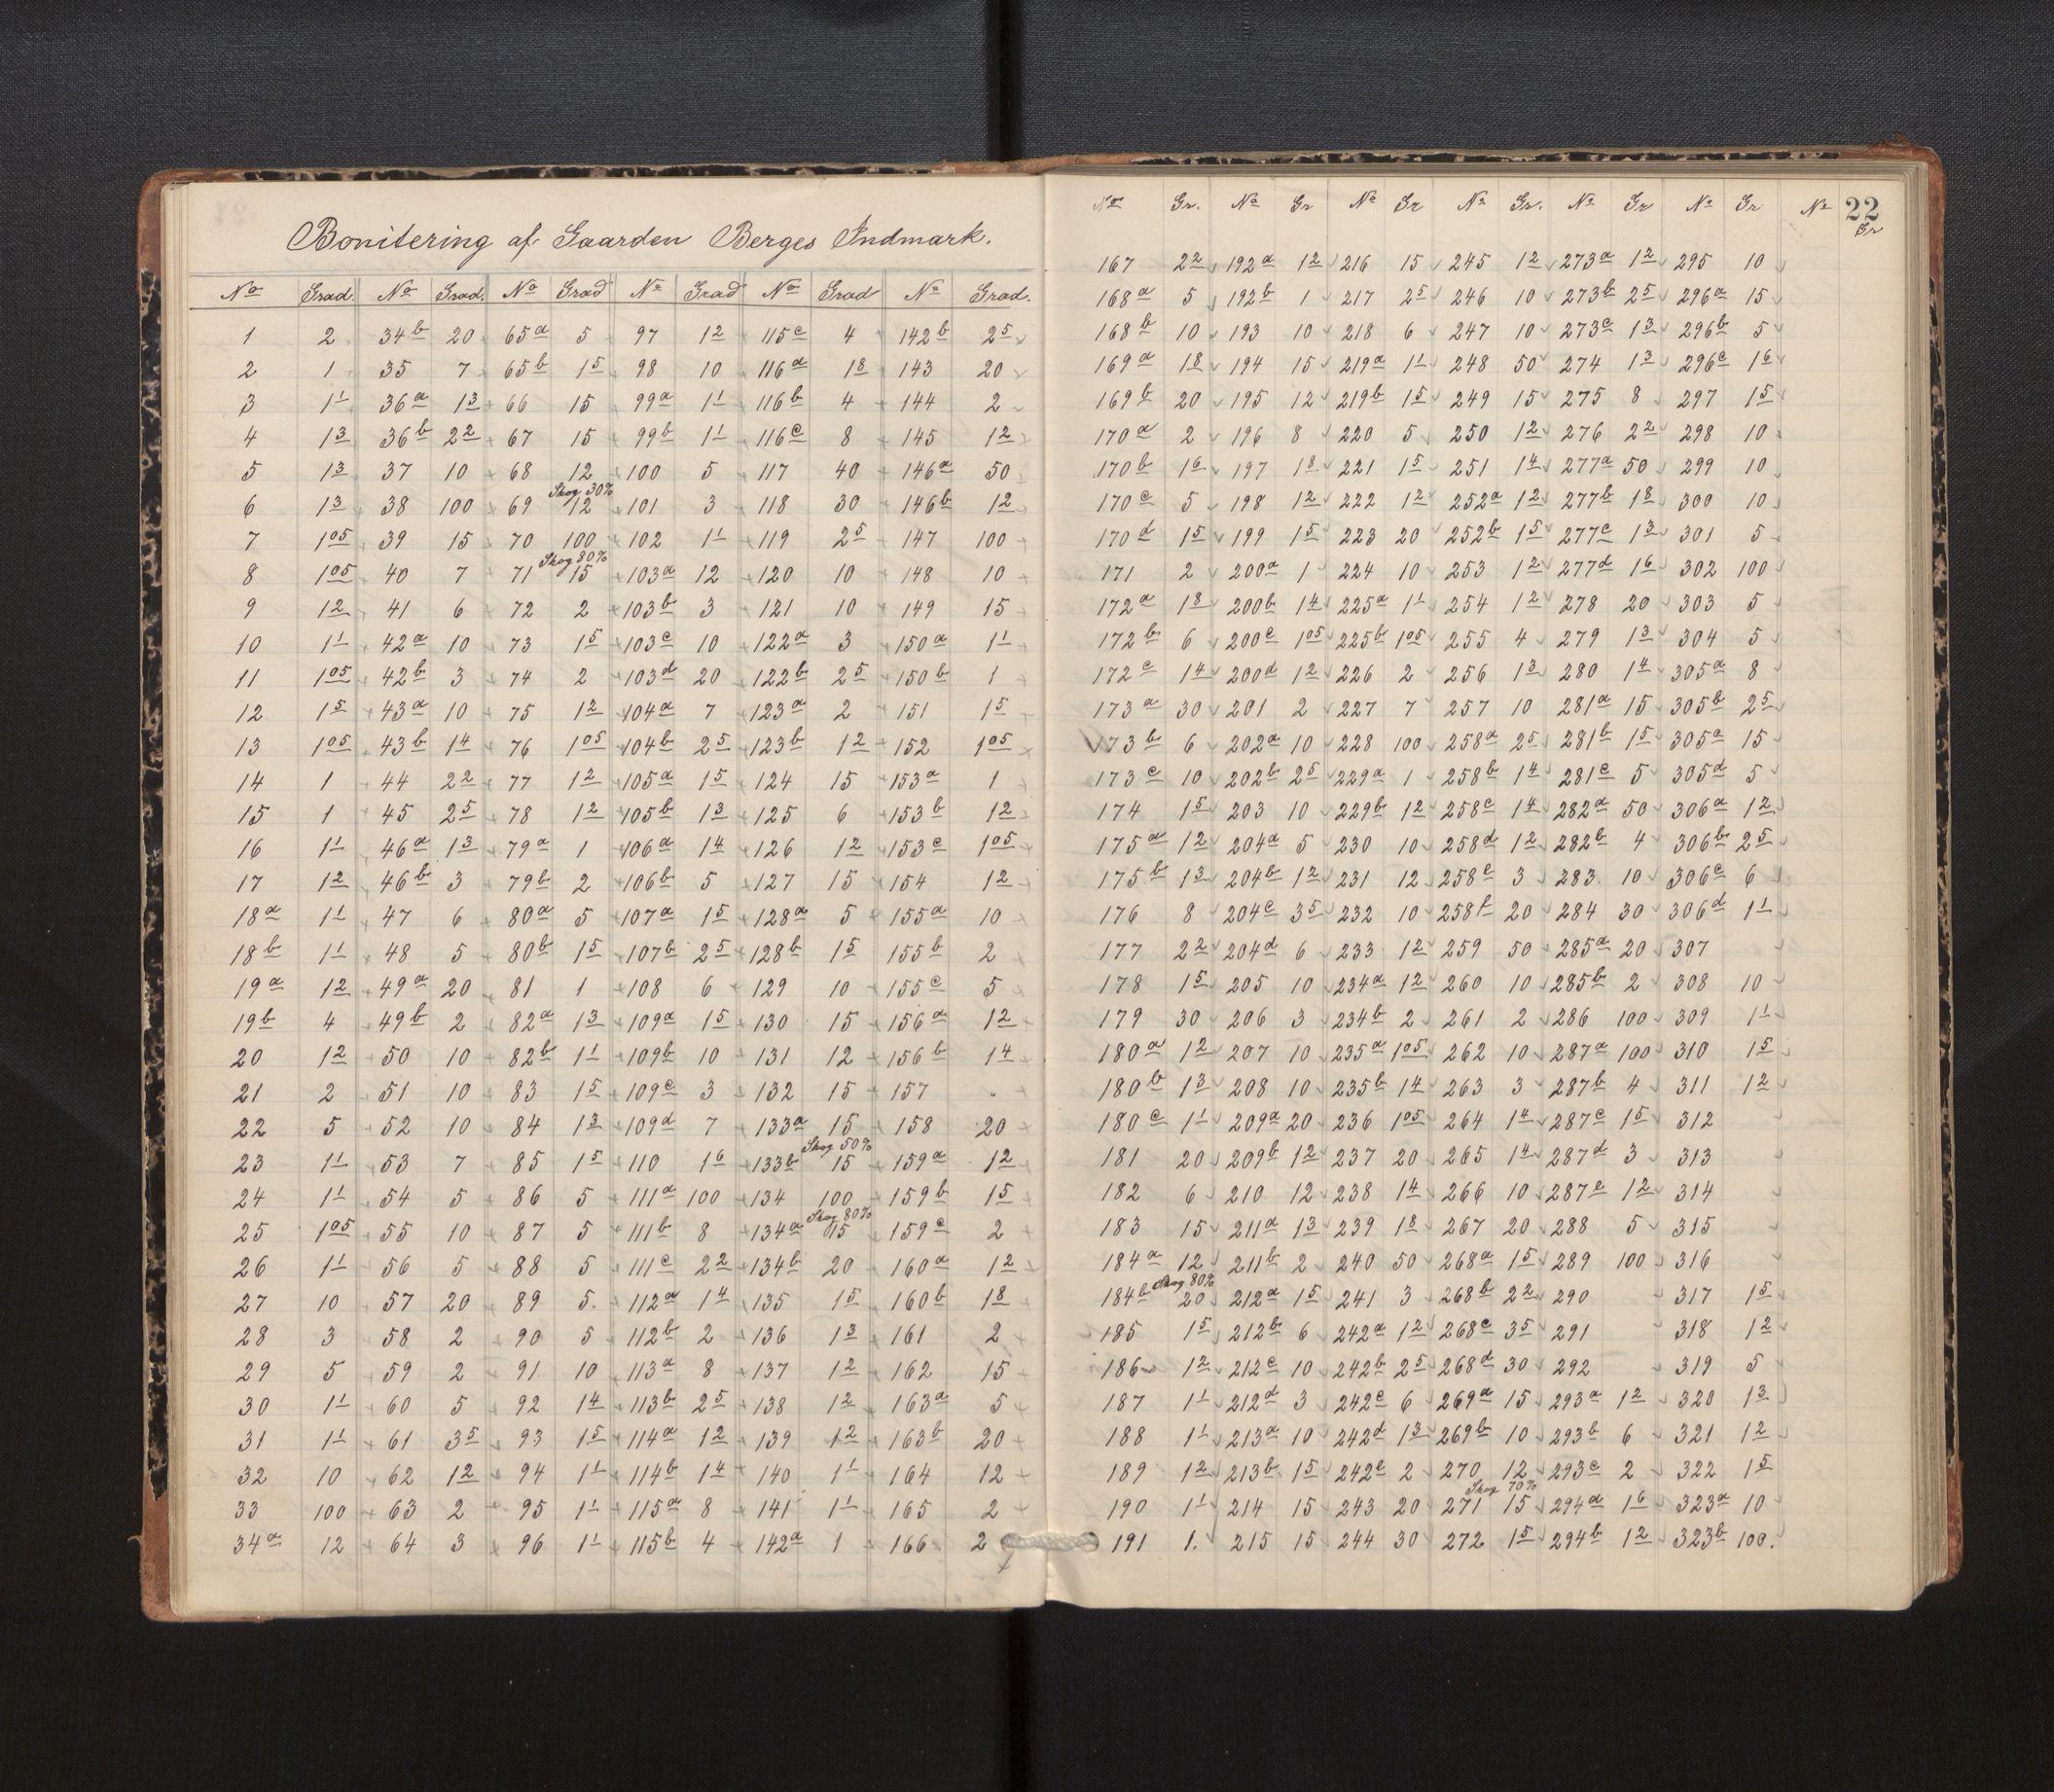 Bonitering af Gaarden Berges Indmark.
No Grad. No Grad. No Grad No Grad No Grad No Grad.
1 2 34b 20 65a 5 97 1² 115c 4 142b 2⁵
2 1 35 7 65b 1⁵ 98 10 116a 1⁸ 143 20
3 1¹ 36a 1³ 66 15 99a 1¹ 116b 4 144 2
4 1³ 36b 2² 67 15 99b 1¹ 116c 8 145 1²
5 1³ 37 10 68 12 100 5 117 40 146a 50
6 1³ 38 100 69 Skog 30% 12 101 3 118 30 146b 1²
7 1⁰⁵ 39 15 70 100 102 1¹ 119 2⁵ 147 100
8 1⁰⁵ 40 7 71 Skog 80% 15 103a 12 120 10 148 10
9 1² 41 6 72 2 103b 3 121 10 149 15
10 1¹ 42a 10 73 1⁵ 103c 10 122a 3 150a 1¹
11 1⁰⁵ 42b 3 74 2 103d 20 122b 2⁵ 150b 1
12 1⁵ 43a 10 75 1² 104a 7 123a 2 151 1⁵
13 1⁰⁵ 43b 1⁴ 76 1⁰⁵ 104b 2⁵ 123b 1² 152 1⁰⁵
14 1 44 2² 77 1² 105a 1⁵ 124 15 153a 1
15 1 45 2⁵ 78 1² 105b 1³ 125 6 153b 1²
16 1¹ 46a 1³ 79a 1 106a 1⁴ 126 1² 153c 1⁰⁵
17 1² 46b 3 79b 2 106b 5 127 15 154 1²
18a 1¹ 47 6 80a 5 107a 1⁵ 128a 5 155a 10
18b 1¹ 48 5 80b 1⁵ 107b 2⁵ 128b 1⁵ 155b 2
19a 1² 49a 20 81 1 108 6 129 10 155c 5
19b 4 49b 2 82a 1³ 109a 1⁵ 130 15 156a 1²
20 1² 50 10 82b 1¹ 109b 10 131 12 156b 1⁴
21 2 51 10 83 1⁵ 109c 3 132 15 157 -
22 5 52 10 84 1³ 109d 7 133a 15 158 20
23 1¹ 53 7 85 1⁵ 110 1⁶ 133b Skog 50% 15 159a 1²
24 1¹ 54 5 86 5 111a 100 134 100 159b 1⁵
25 1⁰⁵ 55 10 87 5 111b 8 134a Skog 80% 15 159c 2
26 1¹ 56 5 88 5 111c 2² 134b 20 160a 1²
27 10 57 20 89 5 112a 1⁴ 135 1⁵ 160b 1⁸
28 3 58 2 90 5 112b 2 136 1³ 161 2
29 5 59 2 91 10 113a 8 137 1² 162 15
30 1¹ 60 5 92 1⁴ 113b 2⁵ 138 1² 163a 5
31 1¹ 61 3⁵ 93 1⁵ 114a 1² 139 1² 163b 20
32 10 62 1² 94 1¹ 114b 1⁴ 140 1¹ 164 12
33 100 63 2 95 1¹ 115a 8 141 1¹ 165 2
34a 12 64 3 96 1¹ 115b 4 142a 1 166 2
22
No Gr. No Gr No Gr No Gr. No Gr No Gr No Gr
167 2² 192a 1² 216 15 245 1² 273a 1² 295 10
168a 5 192b 1 217 2⁵ 246 10 273b 2⁵ 296a 15
168b 10 193 10 218 6 247 10 273c 1³ 296b 5
169a 1⁸ 194 15 219a 1¹ 248 50 274 1³ 296c 1⁶
169b 20 195 12 219b 1⁵ 249 15 275 8 297 1⁵
170a 2 196 8 220 5 250 1² 276 2² 298 10
170b 1⁶ 197 1⁸ 221 1⁵ 251 1⁴ 277a 50 299 10
170c 5 198 1² 222 1² 252a 1² 277b 1⁸ 300 10
170d 1⁵ 199 1⁵ 223 20 252b 1⁵ 277c 1³ 301 5
171 2 200a 1 224 10 253 1² 277d 1⁶ 302 100
172a 1⁸ 200b 1⁴ 225a 1¹ 254 1² 278 20 303 5
172b 6 200c 1⁰⁵ 225b 1⁰⁵ 255 4 279 1³ 304 5
172c 1⁴ 200d 1² 226 2 256 1³ 280 1⁴ 305a 8
173a 30 201 2 227 7 257 10 281a 15 305b 2⁵
173b 6 202a 10 228 100 258a 2⁵ 281b 1⁵ 305c 15
173c 10 202b 2⁵ 229a 1 258b 1⁴ 281c 5 305d 5
174 1⁵ 203 10 229b 1² 258c 1⁴ 282a 50 306a 1²
175a 1² 204a 5 230 10 258d 1² 282b 4 306b 2⁵
175b 1³ 204b 1² 231 12 258e 3 283 10 306c 6
176 8 204c 3⁵ 232 10 258f 20 284 30 306d 1¹
177 2² 204d 6 233 1² 259 50 285a 20 307
178 1⁵ 205 10 234a 1² 260 10 285b 2 308 10
179 30 206 3 234b 2 261 2 286 100 309 1¹
180a 1² 207 10 235a 1⁰⁵ 262 10 287a 100 310 1⁵
180b 1³ 208 10 235b 1⁴ 263 3 287b 4 311 1²
180c 1¹ 209a 20 236 1⁰⁵ 264 1⁴ 287c 1⁵ 312
181 20 209b 1² 237 20 265 1⁴ 287d 3 313
182 6 210 12 238 1⁴ 266 10 287e 1² 314
183 15 211a 1³ 239 1⁸ 267 20 288 5 315
184a 12 211b 2 240 50 268a 1⁵ 289 100 316
184b Skog 80% 20 212a 1⁵ 241 3 268b 2² 290 317 1⁵
185 1⁵ 212b 6 242a 1² 268c 3⁵ 291 318 1²
186 1² 212c 10 242b 2⁵ 268d 30 292 319 5
187 1¹ 212d 3 242c 6 269a 15 293a 1² 320 1³
188 1¹ 213a 10 242d 1³ 269b 10 293b 6 321 1²
189 1² 213b 1⁵ 242e 2 270 12 293c 2 322 1⁵
190 1¹ 214 15 243 20 271 Skog 70% 15 294a 1⁶ 323a 10
191 1. 215 15 244 30 272 1⁵ 294b 1² 323b 100.